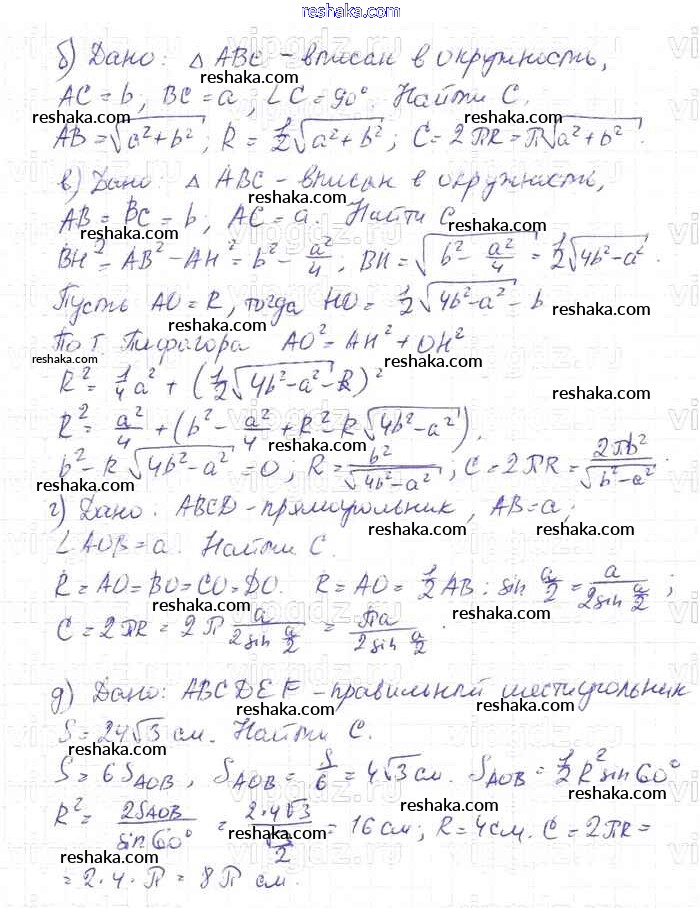 reshaka.com
б) Дано: △ ABC - вписан в окружность,
AC = b, BC = a, ∠C = 90°. Найти C.
AB = √(a² + b²); R = 1/2 √(a² + b²); C = 2πR = π√(a² + b²).
в) Дано: △ ABC - вписан в окружность,
AB = BC = b, AC = a. Найти C.
BH² = AB² - AH² = b² - a²/4; BH = √(b² - a²/4) = 1/2 √(4b² - a²).
Пусть AO = R, тогда HO = 1/2 √(4b² - a²) - b
По т. Пифагора AO² = AH² + OH²
R² = 1/4 a² + (1/2 √(4b² - a²) - R)²
R² = a²/4 + (b² - a²/4 + R² - R√(4b² - a²)).
b² - R√(4b² - a²) = 0; R = b²/√(4b² - a²); C = 2πR = 2πb²/√(b² - a²).
г) Дано: ABCD - прямоугольник, AB = a;
∠AOB = a. Найти C.
R = AO = BO = CO = DO. R = AO = 1/2 AB : sin a/2 = a/(2 sin a/2);
C = 2πR = 2π a/(2 sin a/2) = πa/(2 sin a/2).
д) Дано: ABCDEF - правильный шестиугольник
S = 24√3 см. Найти C.
S = 6 S_AOB, S_AOB = S/6 = 4√3 см. S_AOB = 1/2 R² sin 60°
R² = 2S_AOB/sin 60° = 2·4√3/(√3/2) = 16 см; R = 4 см. C = 2πR =
= 2·4·π = 8π см.